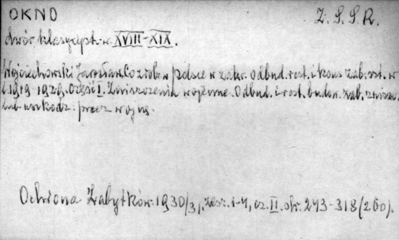 OKNO Z.S.S.R.
dwór klasycyst. w. XVIII-XIX.
Wojciechowski Jarosław. Co zrob. w Polsce w zakr. odbud. rest. i kons. zab. szt. w
l. 1919-1929. Część I. Zniszczenia wojenne. Odbud. i rest. budow. zab. zniszcz.
lub uszkodz. przez wojnę.
Ochrona Zabytków. 1930/31, zesz. 1-4, cz. II. str. 273-318 (260).